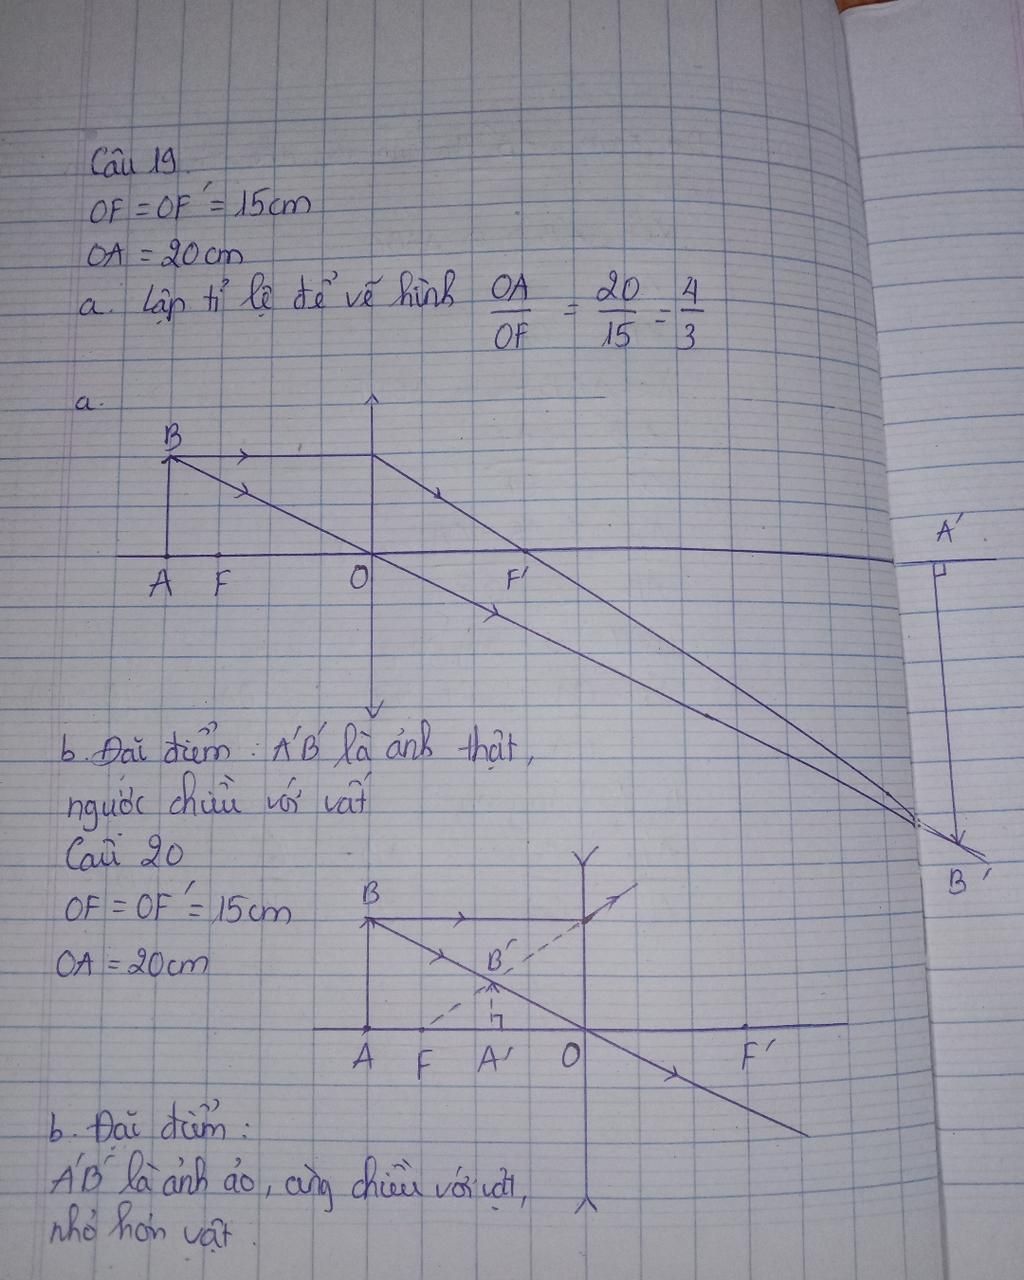 Câu 19.
OF = OF' = 15cm
OA = 20cm
a. Lập tỉ lệ để vẽ hình OA/OF = 20/15 = 4/3
a.
B
A F O F' A'
B'
b. Đặc điểm : A'B' là ảnh thật,
ngược chiều với vật
Câu 20
OF = OF' = 15cm
OA = 20cm
B
B'
A F A' O F'
b. Đặc điểm :
A'B' là ảnh ảo, cùng chiều với vật,
nhỏ hơn vật.